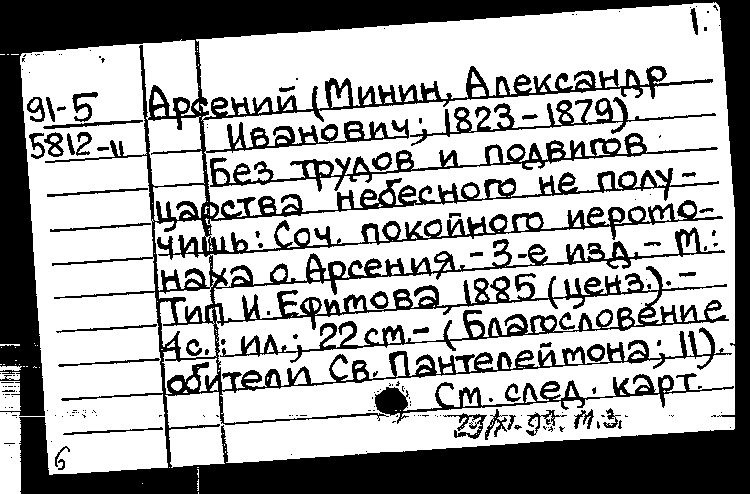 1.
91-5 Арсений (Минин, Александр
5812-11 Иванович; 1823-1879).
Без трудов и подвигов
царства небесного не полу-
чишь: Соч. покойного иеромо-
наха о. Арсения.-3-е изд.- М.:
Тип. И. Ефимова, 1885 (ценз.). -
4с.: ил.; 22 см.- (Благословение
обители Св. Пантелеймона; II).
См. след. карт.
6